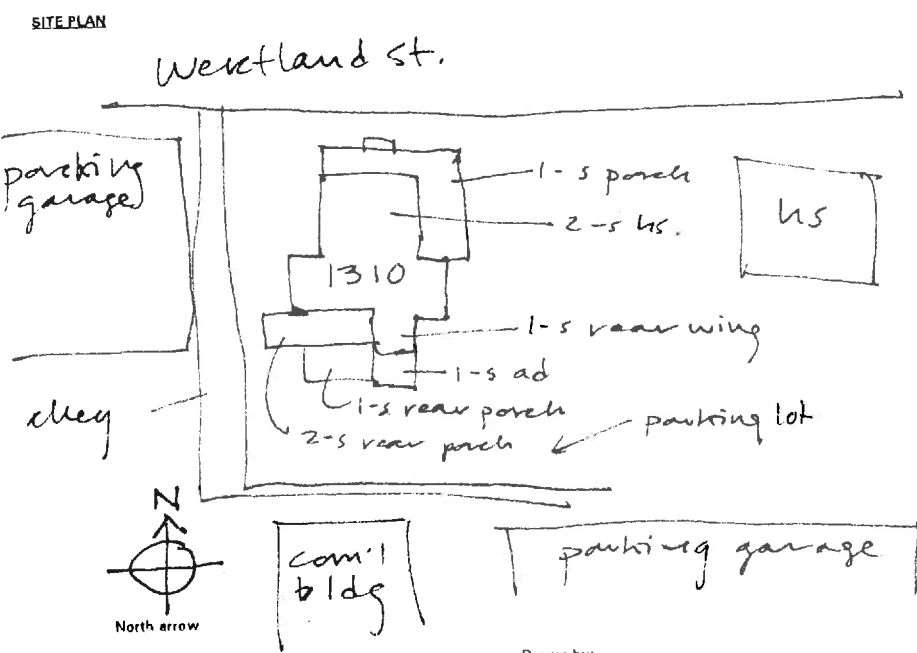 SITE PLAN
Wertland St.
parking
garage
1-s porch
2-s hs.
hs
1310
1-s rear wing
1-s ad
1-s rear porch
2-s rear porch
alley
parking lot
N
North arrow
com'l
bldg
parking garage